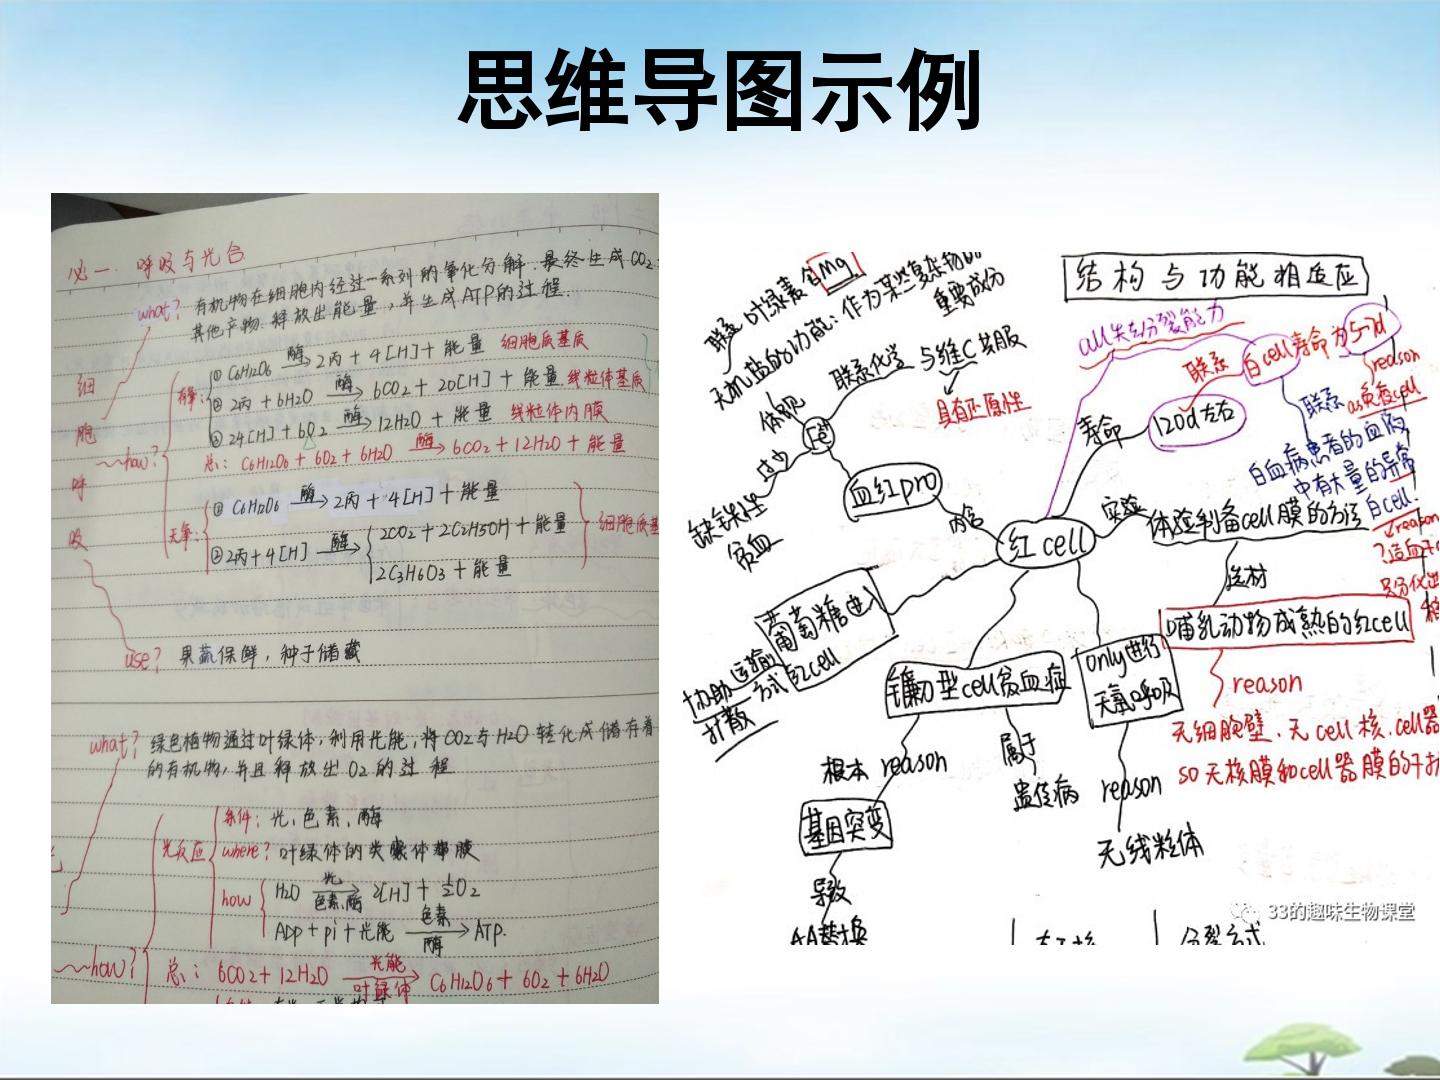 思维导图示例
必一. 呼吸与光合
what? 有机物在细胞内经过一系列的氧化分解.最终生成CO2
其他产物.释放出能量,并生成ATP的过程.
细胞呼吸
how?
有氧:
① C6H12O6 酶→ 2丙 + 4[H] + 能量 细胞质基质
② 2丙 + 6H2O 酶→ 6CO2 + 20[H] + 能量 线粒体基质
③ 24[H] + 6O2 酶→ 12H2O + 能量 线粒体内膜
总: C6H12O6 + 6O2 + 6H2O 酶→ 6CO2 + 12H2O + 能量
无氧:
① C6H12O6 酶→ 2丙 + 4[H] + 能量
② 2丙 + 4[H] 酶→
2CO2 + 2C2H5OH + 能量
2C3H6O3 + 能量
细胞质基
use? 果蔬保鲜, 种子储藏
what? 绿色植物通过叶绿体,利用光能,将CO2与H2O转化成储存着
的有机物,并且释放出O2的过程
how?
光反应
条件: 光、色素、酶
where? 叶绿体的类囊体薄膜
how
H2O 光→色素、酶 2[H] + ½O2
ADP + pi + 光能 色素→酶 ATP.
总: 6CO2 + 12H2O 光能→叶绿体 C6H12O6 + 6O2 + 6H2O
结构与功能相适应
联系 叶绿素含Mg
无机盐的功能: 作为某些复杂物的
重要成分
体现
联系化学
与维C共服
具有还原性
Fe
过少
缺铁性
贫血
血红pro
内含
红cell
寿命
120d左右
联系
白cell寿命为5-7d
all失去分裂能力
reason
as免疫cell
联系
白血病患者的血液
中有大量的异常
白cell.
reason
实验
体验制备cell膜的方法
选材
哺乳动物成熟的红cell
reason
无细胞壁、无cell核、cell器
so无核膜和cell器膜的干扰
葡萄糖进入
红cell
运输
方式
协助
扩散
镰刀型cell贫血症
根本 reason
基因突变
导致
AA替换
属于
遗传病
only进行
无氧呼吸
reason
无线粒体
分裂方式
33的趣味生物课堂